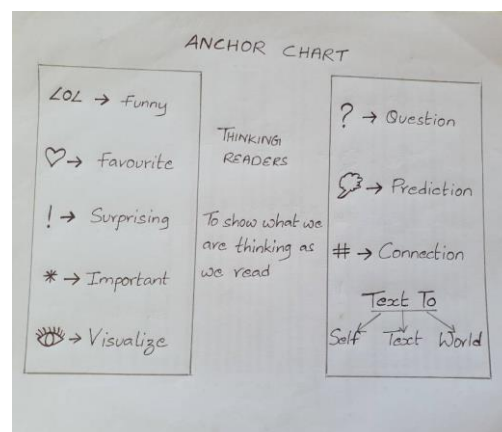 ANCHOR CHART
LOL → Funny
♡ → Favourite
! → Surprising
* → Important
→ Visualize
THINKING
READERS
To show what we
are thinking as
we read
? → Question
→ Prediction
# → Connection
Text To
Self Text World